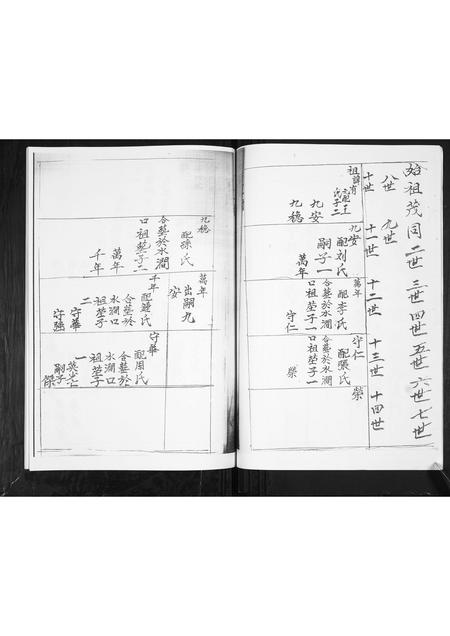 始祖茂同二世三世四世五世六世七世
八世九世
十世十一世十二世十三世十四世
祖諱有
配王氏子二
九安
九穩
九安
配刘氏
嗣子一
萬年
萬年
配李氏
合墓於水澗
口祖塋子一
守仁
守仁
配張氏
合墓於水澗
口祖塋子一
榮
榮
九穩
配孫氏
合墓於水澗
口祖塋子二
萬年
千年
萬年
出嗣九
安
千年
配趙氏
合墓於
水澗口
祖塋子
二
守華
守強
守華
配周氏
合墓於
水澗口
祖塋子
一
英亡
嗣子
傑